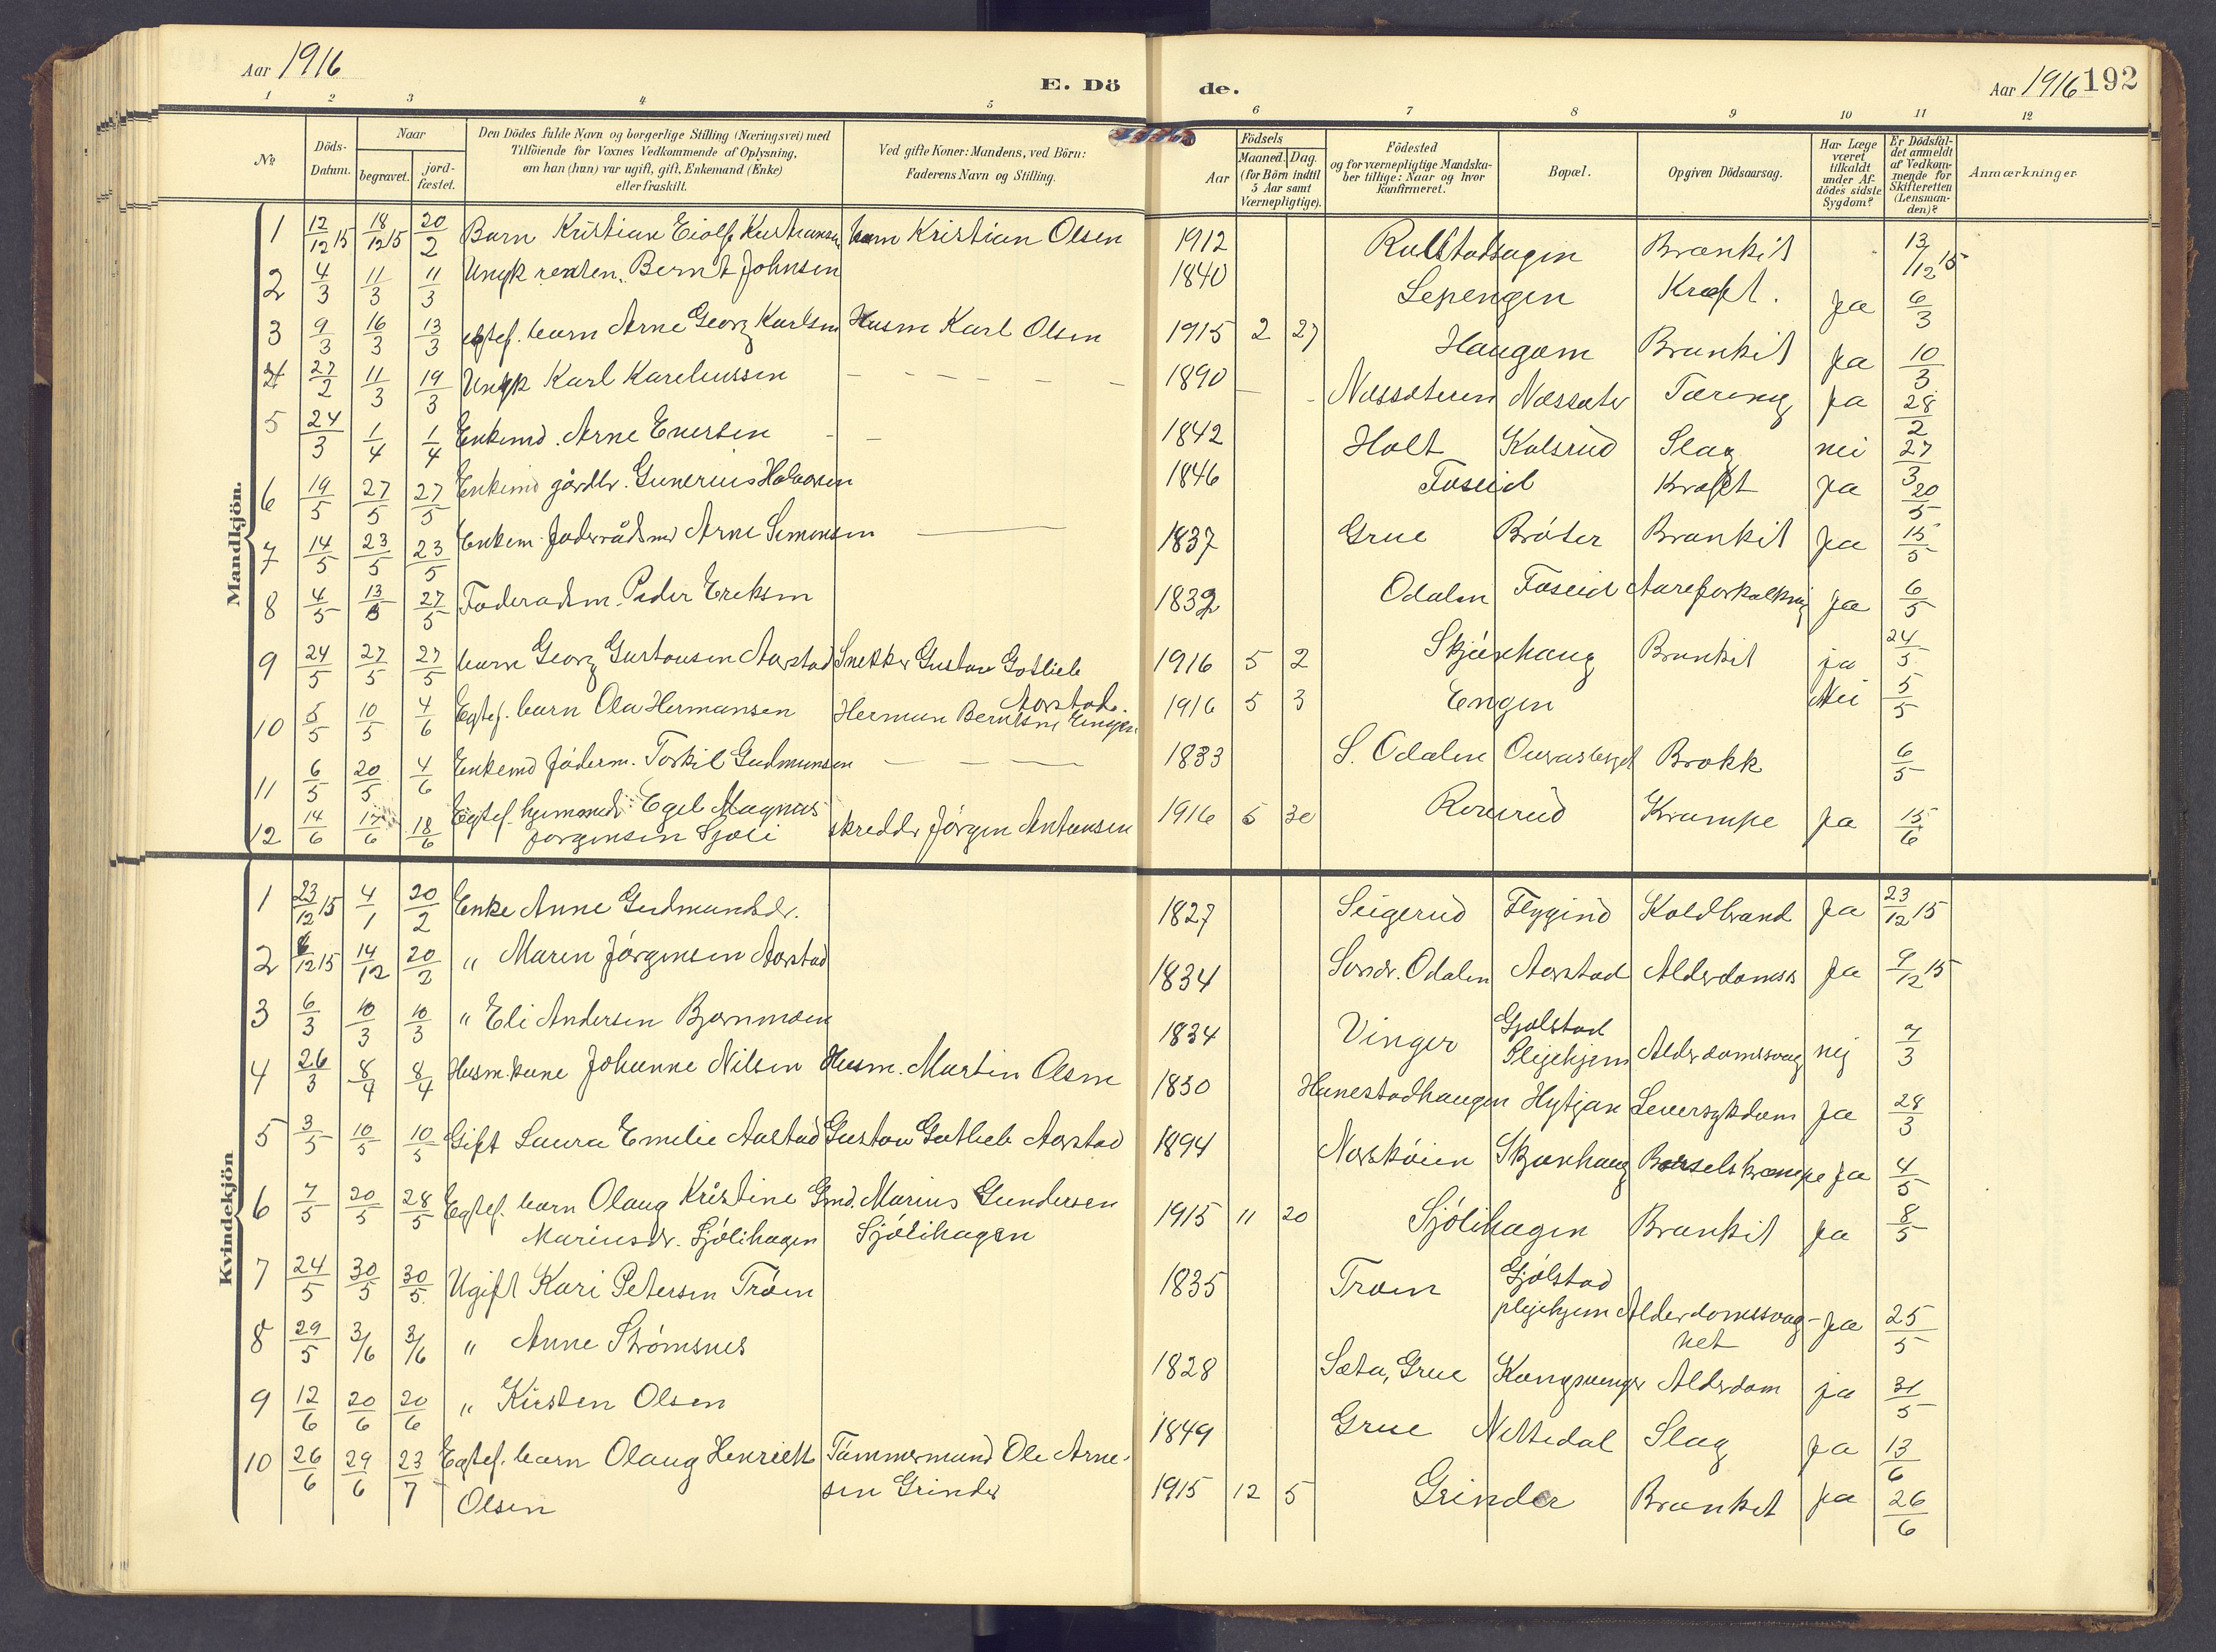 Aar 1916
E. Dö de.
Aar 1916 192
1 2 3 4 5 6 7 8 9 10 11 12
№ Döds-Datum. Naar begravet. jord-fæstet. Den Dödes fulde Navn og borgerlige Stilling (Næringsvei) med Tilföiende for Voxnes Vedkommende af Oplysning, om han (hun) var ugift, gift, Enkemand (Enke) eller fraskilt. Ved gifte Koner: Mandens, ved Börn: Faderens Navn og Stilling. Födsels Aar Maaned. Dag. (for Börn indtil 5 Aar samt Værnepligtige). Födested og for værnepligtige Mandskaber tillige: Naar og hvor konfirmeret. Bopæl. Opgiven Dödsaarsag. Har Læge været tilkaldt under Afdödes sidste Sygdom? Er Dödsfaldet anmeldt af Vedkommende for Skifteretten (Lensmanden)? Anmærkninger
Mandkjön.
1 12/12 15 18/12 15 20/2 Barn Kristian Eiolf Kristiansen Kristian Olsen 1912 Brankit 13/12 15
2 4/3 11/3 11/3 Ungk. Bernt Johnsen 1840 Lepengen Kræft. Ja 6/3
3 9/3 16/3 13/3 egtef. barn Arne Georg Karlsen Husm Karl Olsen 1915 2 27 Haugom Brankit Ja 10/3
4 27/2 11/3 19/3 Ungk Karl Kareliussen 1890 Næssæteren Næssæter Tæring Ja 28/2
5 24/3 1/4 1/4 Enkemd. Arne Evensen 1842 Holt Kolsrud Slag nei 27/3
6 19/5 27/5 27/5 Enkemd gårdbr. Gunerius Halvorsen 1846 Foseid Kræft Ja 20/5
7 14/5 23/5 23/5 Enkem. foderrådsmd Arne Simensen 1837 Grue Bråter Brankit Ja 15/5
8 4/5 13/5 27/5 Foderadsm. Peder Ereksen 1832 Odalen Foseid Aareforkalkning Ja 6/5
9 24/5 27/5 27/5 barn Georg Gustavsen Aarstad Snekker Gustav Gotlieb Aarstad. 1916 5 2 Skjærhaug Brankit ja 24/5
10 5/5 10/5 4/6 Egtef. barn Ola Hermansen Herman Berntsen Engen 1916 5 3 Engen Nei 5/5
11 6/5 20/5 4/6 Enkemd föderm. Torkil Gudmunsen 1833 S. Odalen Brokk 6/5
12 14/6 17/6 18/6 Egtef. hjemmedr: Egil Magnus skredder Jörgen Antonsen 1916 5 30 Romrud Krampe Ja 15/6
Jörgensen Sjöli
Kvindekjön
1 23/12 15 4/1 20/2 Enke Anne Gudmundsdr. 1827 Seigerud Flygind Koldbrand Ja 23/12 15
2 8/12 15 14/12 20/2 " Maren Jörgensen Aarstad 1834 Sondr. Odalen Aarstad Alderdomss Ja 9/12 15
3 6/3 10/3 10/3 " Eli Andersen Bjørnmoen 1834 Vinger Gjølstad Pleiehjem Alderdomssvag nej 7/3
4 26/3 8/4 8/4 Husm.kone Johanne Nilsen Husm. Martin Olsen 1850 Hanestadhaugen Hytjan Leversykdom Ja 28/3
5 3/5 10/5 10/5 Gift Laura Emilie Aastad Gustav Gotlieb Aarstad 1894 Norskóien Skjærhaug Barselskrampe Ja 4/5
6 7/5 20/5 28/5 Egtef. barn Olaug Kristine Gmd. Marius Gundersen 1915 11 20 Sjölihagen Brankit Ja 8/5
Mariusdr. Sjölihagen Sjölihagen
7 24/5 30/5 30/5 Ugift Kari Petersen Tröen 1835 Troen Gjölstad pleiehjem Alderdomssvaghet Ja 25/5
8 29/5 3/6 3/6 " Anne Strømsnes 1828 Sæta, Grue Kongsvinger Alderdom ja 31/5
9 12/6 20/6 20/6 " Kirsten Olsen 1849 Grue Nettedal Slag Ja 13/6
10 26/6 29/6 23/7 Egtef. barn Olaug Henriett Tömmermand Ole Arne- 1915 12 5 Grinder Brankit Ja 26/6
Olsen sen Grinder